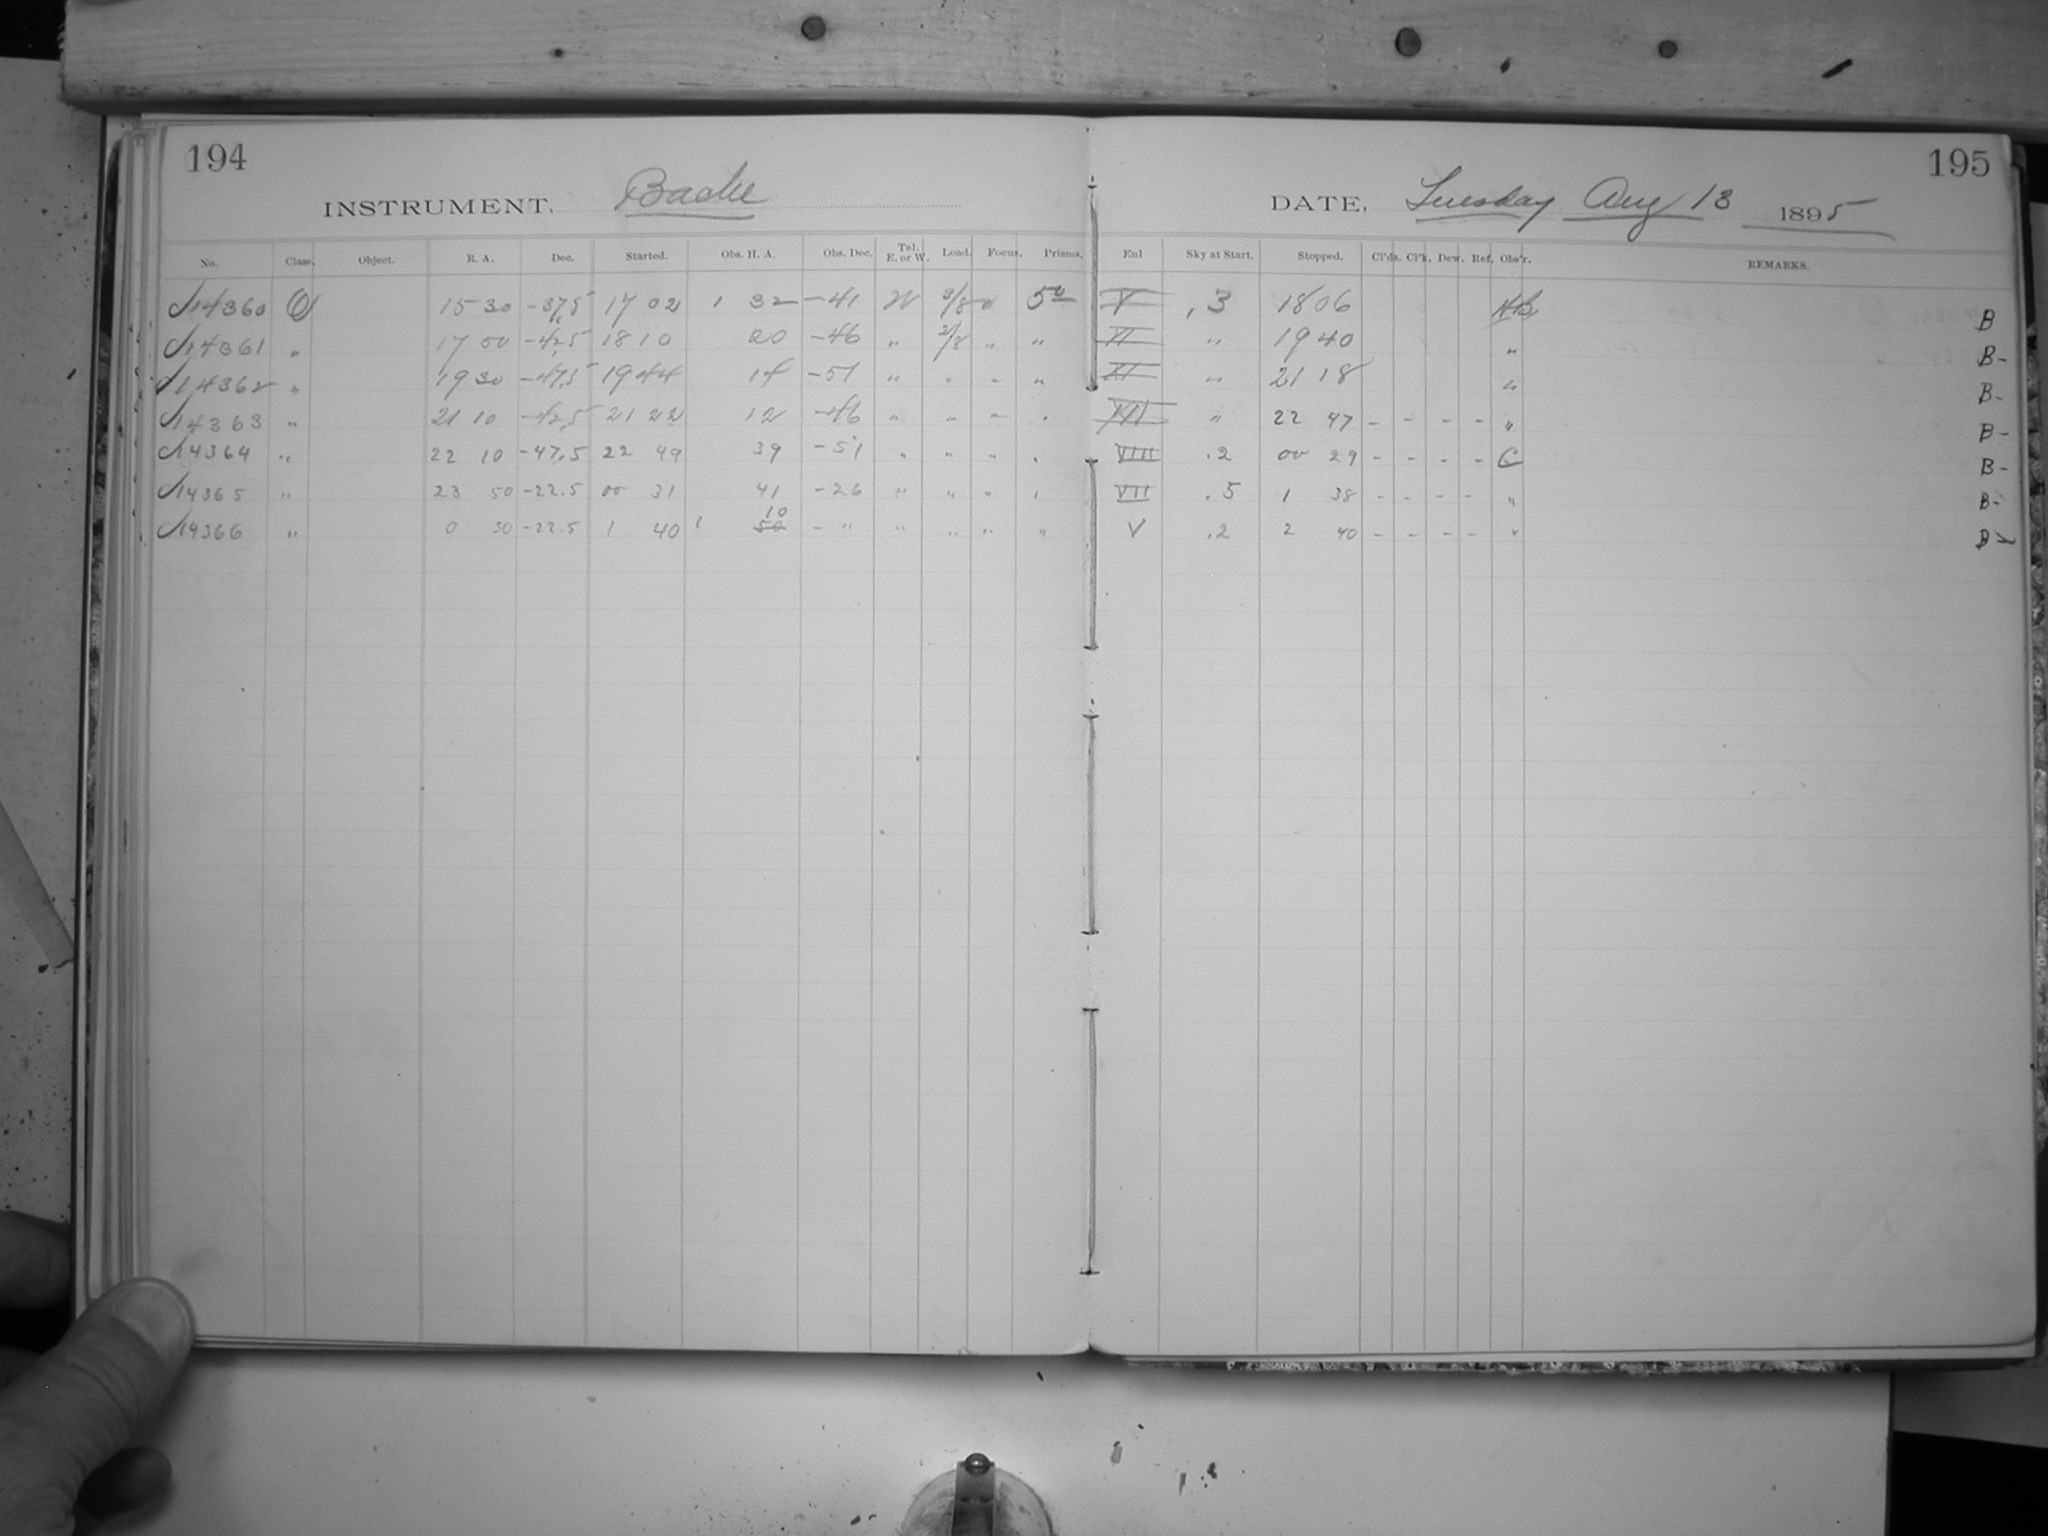 194
INSTRUMENT. Bache
No. Class. Object. R. A. Dec. Started. Obs. H. A. Obs. Dec. Tel. E. or W. Load. Focus. Prisms.
14360 O 15 30 -37,5 17 02 1 32 -41 W 3/8 0 5°
14361 " 17 00 -42,5 18 10 20 -46 " 2/8 " "
14362 " 19 30 -47,5 19 44 14 -51 " " " "
14363 " 21 10 -42,5 21 22 12 -46 " " " "
14364 " 22 10 -47.5 22 49 39 -51 " " " "
14365 " 23 50 -22.5 00 31 41 -26 " " " "
14366 " 0 30 -22.5 1 40 1 10 50 - " " " " "
195
DATE, Tuesday Aug 13 1895
Enl Sky at Start. Stopped. Cl'ds. Cl'k. Dew. Ref. Obs'r. REMARKS.
V ,3 18 06 B
VI " 19 40 " B-
XI " 21 18 " B-
VII " 22 47 - - - - " B-
VIII .2 00 29 - - - - C B-
VII .5 1 38 - - - - " B-
V .2 2 40 - - - - " B-